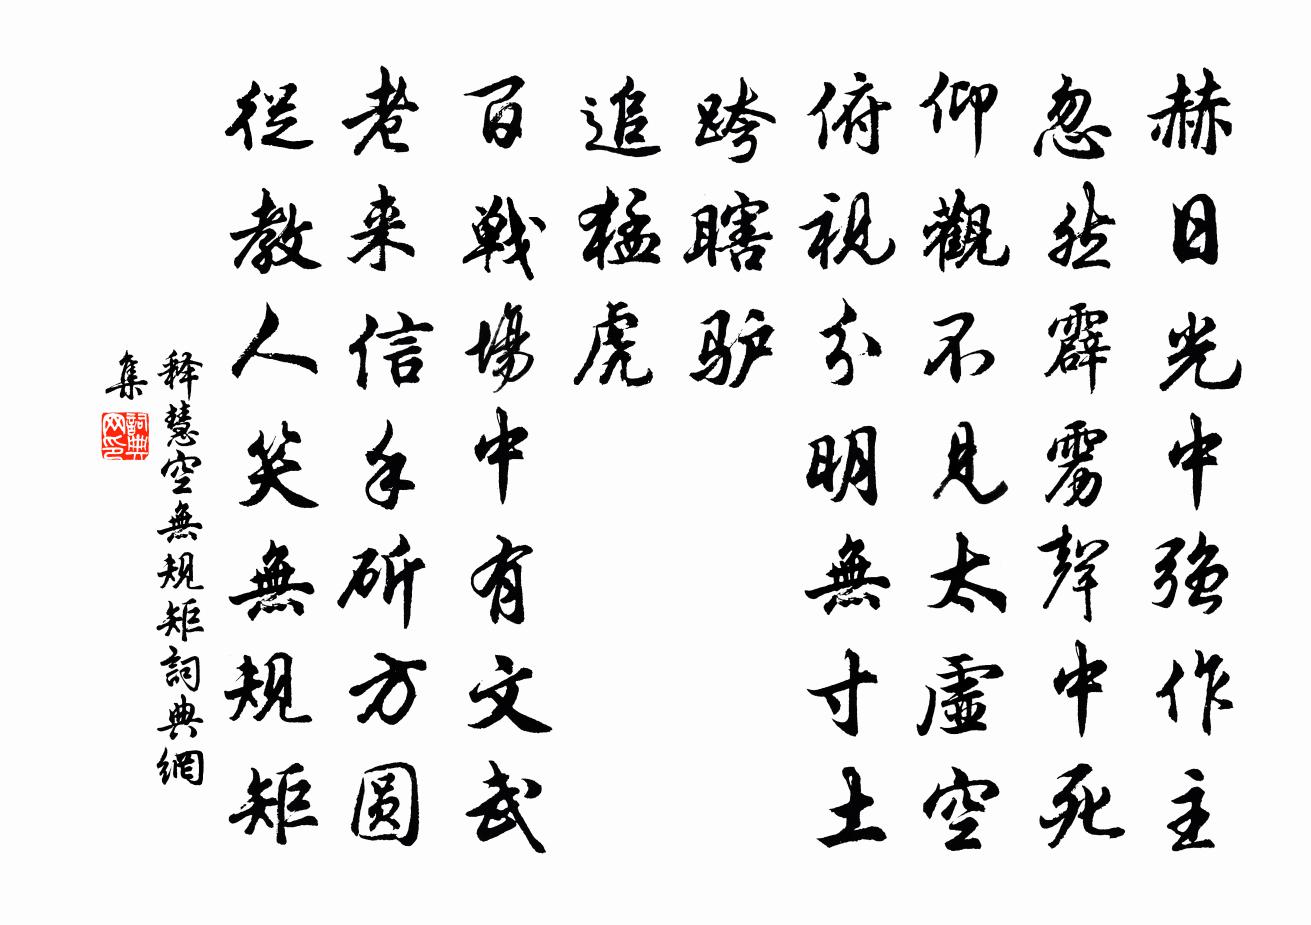 赫日光中強作主
忽然霹靂聲中死
仰觀不見太虛空
俯視分明無寸土
跨瞎驴
追猛虎
百戰場中有文武
老来信手斫方圆
從教人笑無規矩
释慧空無規矩詞典網
集
詞典网印